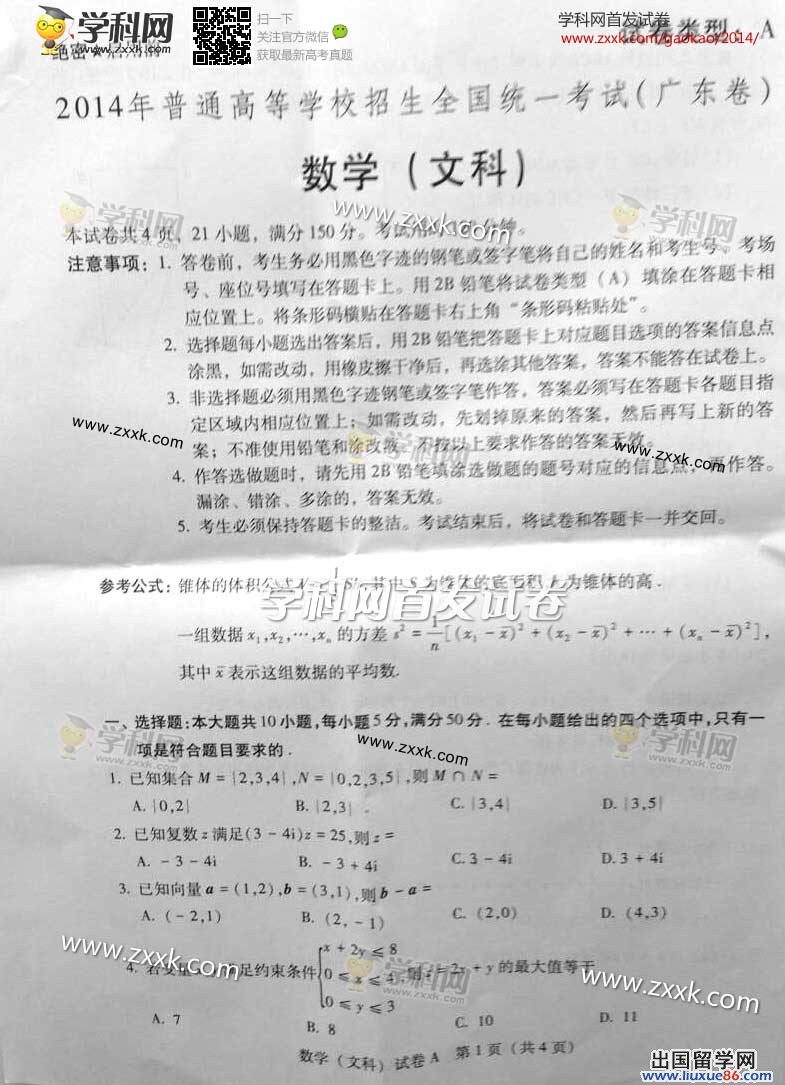 学科网
www.zxxk.com
扫一下
关注官方微信
获取最新高考真题
学科网首发试卷
www.zxxk.com/gaokao/2014/
试卷类型：A
2014年普通高等学校招生全国统一考试(广东卷)
数学(文科)
学科网
www.zxxk.com
学科网
本试卷共4页，21小题，满分150分。考试
注意事项：1. 答卷前，考生务必用黑色字迹的钢笔或签字笔将自己的姓名和考生号、考场
号、座位号填写在答题卡上。用2B铅笔将试卷类型（A）填涂在答题卡相
应位置上。将条形码横贴在答题卡右上角“条形码粘贴处”。
2. 选择题每小题选出答案后，用2B铅笔把答题卡上对应题目选项的答案信息点
涂黑，如需改动，用橡皮擦干净后，再选涂其他答案，答案不能答在试卷上。
3. 非选择题必须用黑色字迹钢笔或签字笔作答，答案必须写在答题卡各题目指
定区域内相应位置上；如需改动，先划掉原来的答案，然后再写上新的答
www.zxxk.com
学科网
案；不准使用铅笔和涂改液。不按以上要求作答的答案无效。
www.zxxk.com
4. 作答选做题时，请先用2B铅笔填涂选做题的题号对应的信息点，再作答。
漏涂、错涂、多涂的，答案无效。
5. 考生必须保持答题卡的整洁。考试结束后，将试卷和答题卡一并交回。
参考公式：锥体的体积公式 其中S为锥体的底面积，h为锥体的高.
学科网首发试卷
一组数据x₁,x₂,⋯,xₙ的方差s²=1/n[(x₁-x̄)²+(x₂-x̄)²+⋯+(xₙ-x̄)²],
其中x̄表示这组数据的平均数.
一、选择题：本大题共10小题，每小题5分，满分50分．在每小题给出的四个选项中，只有一
项是符合题目要求的．
学科网
www.zxxk.com
学科网
1. 已知集合M={2,3,4},N={0,2,3,5},则M∩N=
A. {0,2} B. {2,3} C. {3,4} D. {3,5}
2. 已知复数z满足(3-4i)z=25,则z=
A. -3-4i B. -3+4i C. 3-4i D. 3+4i
3. 已知向量a=(1,2),b=(3,1),则b-a=
A. (-2,1) B. (2,-1) C. (2,0) D. (4,3)
www.zxxk.com
学科网
www.zxxk.com
4. 若变量 足约束条件{x+2y≤8
0≤x≤4,则z=2x+y的最大值等于
0≤y≤3
A. 7 B. 8 C. 10 D. 11
数学(文科)试卷A 第1页(共4页)
出国留学网
www.liuxue86.com